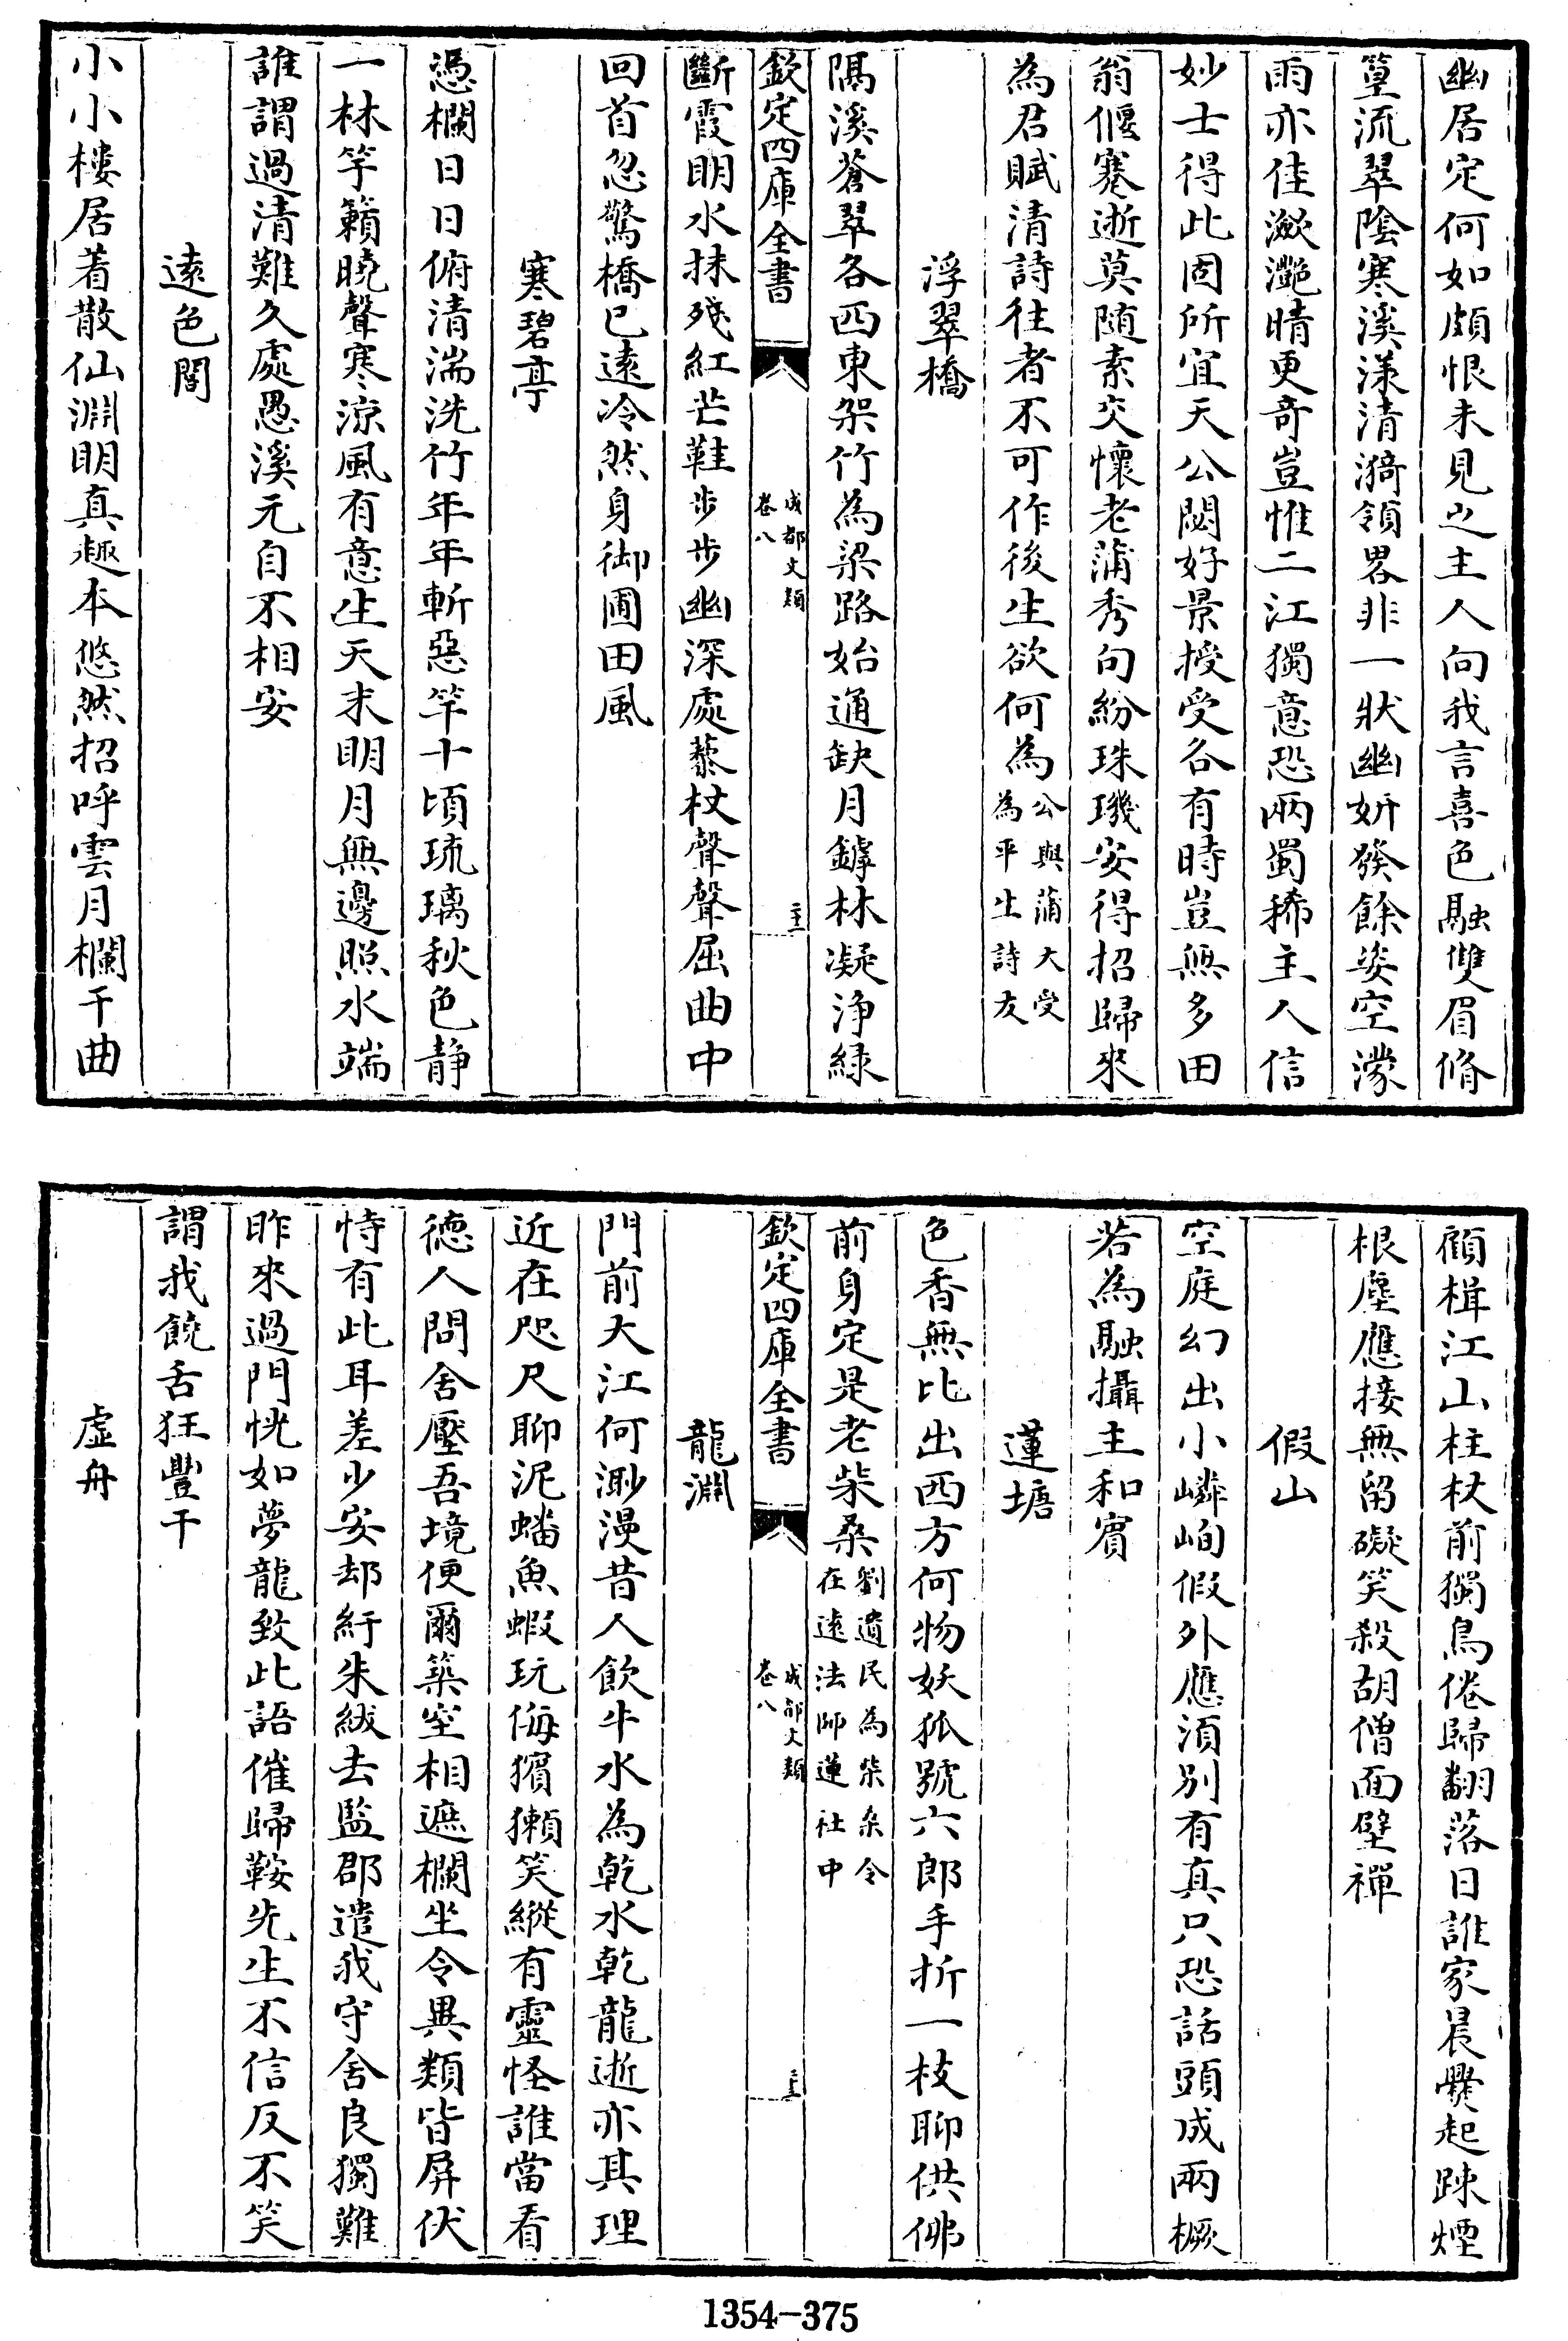 幽居定何如頗恨未見之主人向我言喜色融雙眉脩
篁流翠陰寒溪漾清漪領畧非一狀幽妍發餘姿空濛
雨亦佳瀲灔晴更奇豈惟二江獨意恐兩蜀稀主人信
妙士得此固所宜天公閟好景授受各有時豈無多田
翁偃蹇逝莫随素交懷老蒲秀句紛珠璣安得招歸來
為君賦清詩往者不可作後生欲何為公與蒲大受為平生詩友
浮翠橋
隔溪蒼翠各西東架竹為梁路始通缺月鏬林凝浄緑
欽定四庫全書
成都文類
卷八
斷霞明水抹殘紅芒鞋步步幽深處藜杖聲聲屈曲中
回首忽驚橋已遠冷然身御圃田風
寒碧亭
憑欄日日俯清湍洗竹年年斬惡竿十頃琉璃秋色静
一林竽籟曉聲寒凉風有意生天末明月無邊照水端
誰謂過清難久處愚溪元自不相安
遠色閣
小小樓居着散仙淵明真趣本悠然招呼雲月欄干曲
顧楫江山柱杖前獨鳥倦歸翻落日誰家晨爨起踈煙
根塵應接無留礙笑殺胡僧面壁禪
假山
空庭幻出小嶙峋假外應須别有真只恐話頭成兩橛
若為融攝主和賓
蓮塘
色香無比出西方何物妖狐號六郎手折一枝聊供佛
前身定是老柴桑劉遺民為柴桑令在遠法師蓮社中
欽定四庫全書
成都文類
卷八
龍淵
門前大江何渺漫昔人飲牛水為乾水乾龍逝亦其理
近在咫尺聊泥蟠魚蝦玩侮獱獺笑縱有靈怪誰當看
德人問舍壓吾境便爾築室相遮欄坐令異類皆屏伏
恃有此耳差少安却紆朱紱去監郡遣我守舍良獨難
昨來過門恍如夢龍致此語催歸鞍先生不信反不笑
謂我饒舌狂豐干
虚舟
1354-375